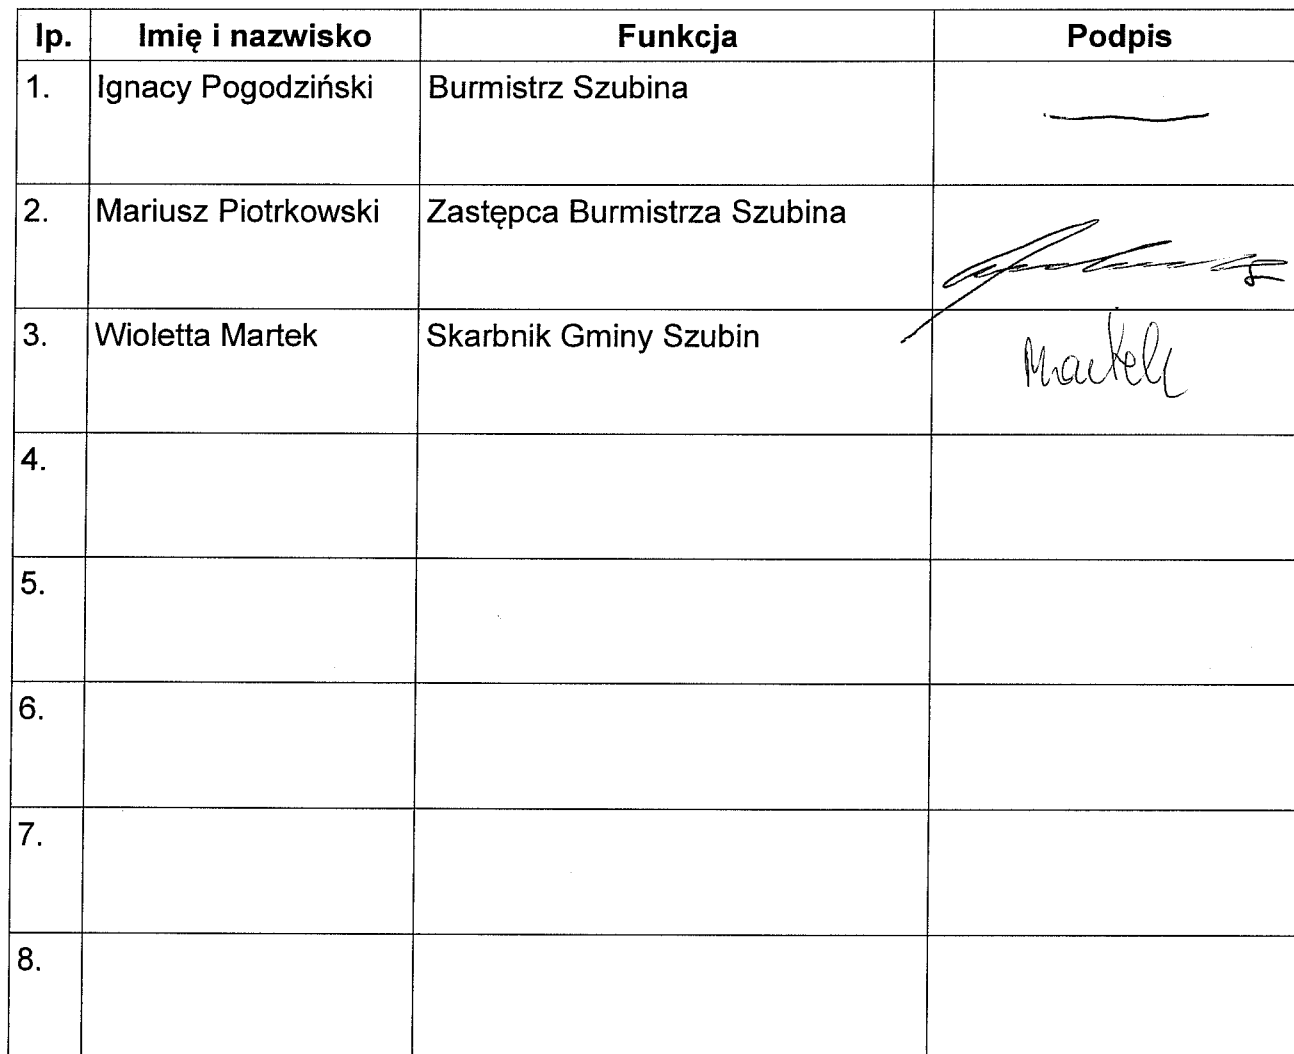 lp. Imię i nazwisko Funkcja Podpis
1. Ignacy Pogodziński Burmistrz Szubina
2. Mariusz Piotrkowski Zastępca Burmistrza Szubina
3. Wioletta Martek Skarbnik Gminy Szubin Martek
4.
5.
6.
7.
8.